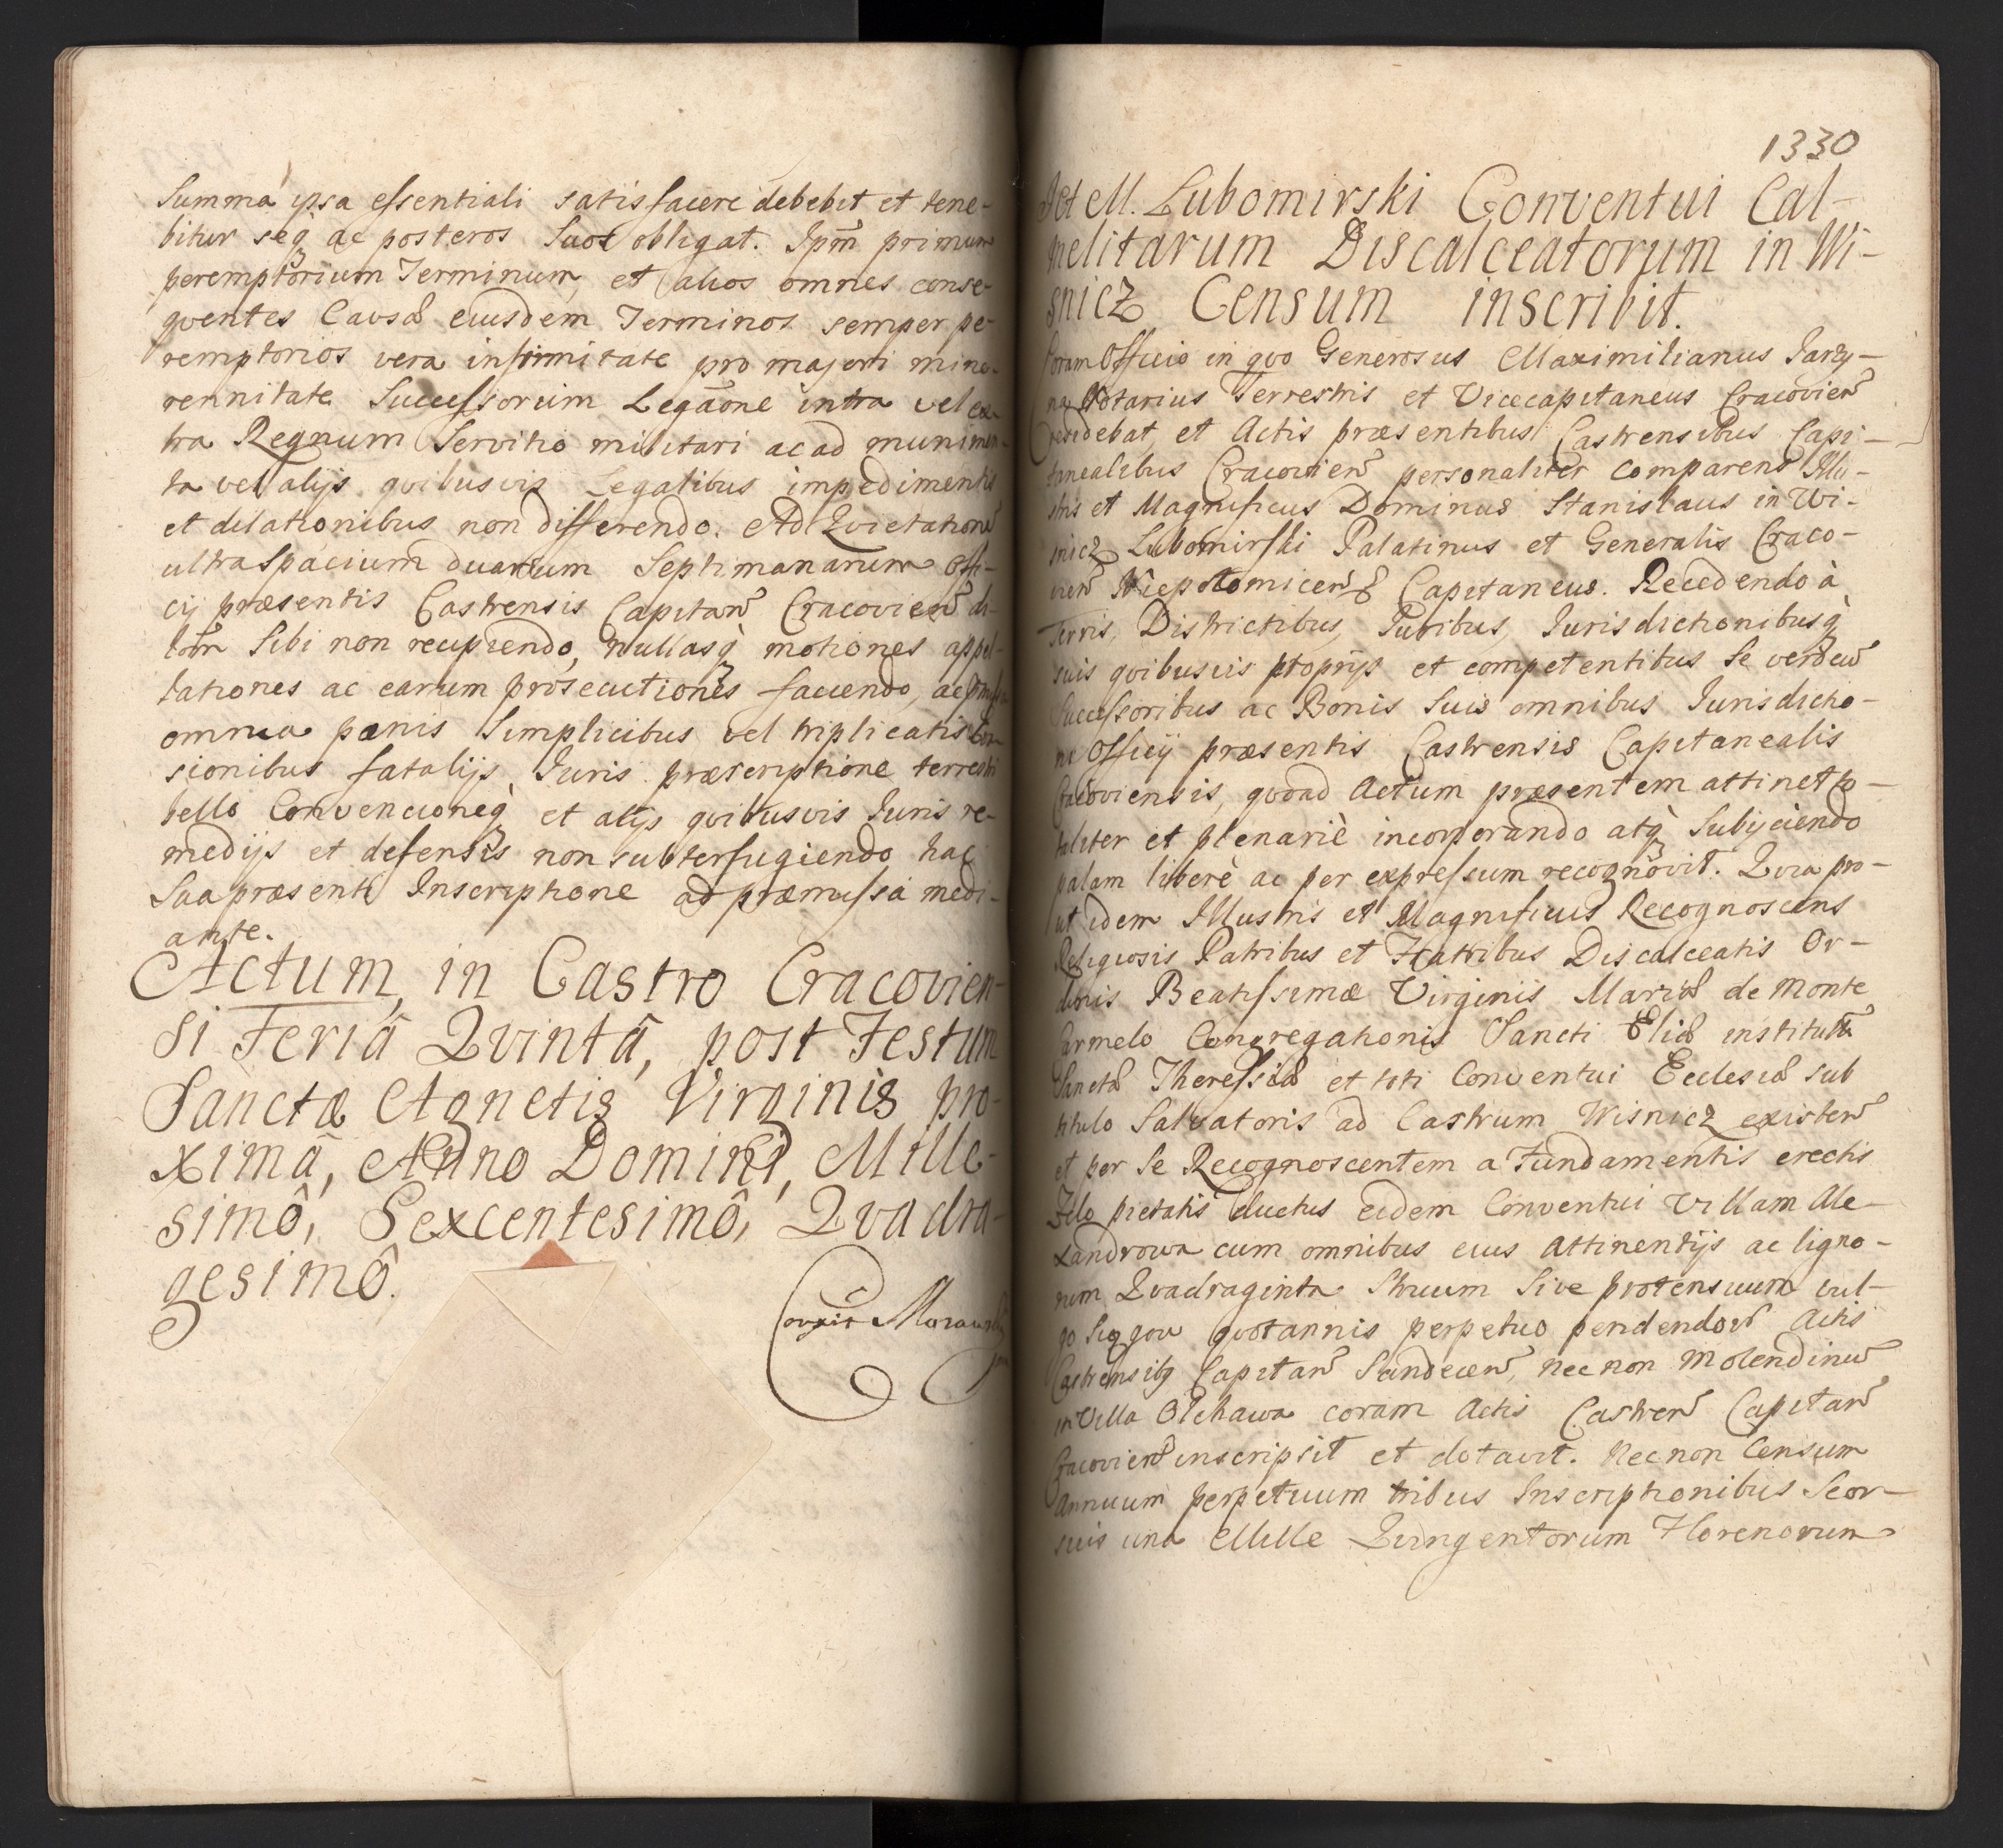 Summa ipsa essentiali satisfacere debebit et tene-
bitur seq́ ac posteros suos obligat. Ipm̃ primum
peremptorium Terminum, et alios omnes conse-
quentes Causæ eiusdem Terminos semper pe-
remptorios vera infirmitate pro majori mino-
rennitate Successorum Legaõne intra vel ex-
tra Regnum Servitio militari ac ad munimen-
ta vel alijs quibusvis Legalibus impedimentis
et dilationibus non differendo. Ad Quietationẽ
ultra spacium duarum Septimanarum Offi-
cij præsentis Castrensis Capitan̄ Cracovien̄ di-
Sibi non recipiendo, nullasq́ motiones appel-
lationes ac earum prosecutiones faciendo, ac
omnia pœnis simplicibus vel triplicatis
sionibus fatalijs Juris præscriptione terrestri
bello Convencioneq́ et alijs quibusvis Juris re-
medijs et defensis non subterfugiendo hac
Sua præsenti Inscriptione ad præmissa medi-
ante.
Actum, in Castro Cracovien-
si Feriâ Qvintâ, post Festum
Sanctæ Agnetis Virginis pro-
ximâ, Anno Domini, Mille-
simô, Sexcentesimô, Qvadra-
gesimô.
1330
M. Lubomirski Conventui Cal-
melitarum Discalceatorum in Wi-
snicz Censum inscribit.
Coram Officio in quo Generosus Maximilianus Jarzy-
na Notarius Terrestris et Vicecapitaneus Cracovien̄
residebat, et Actis præsentibus Castrensibus Capi-
tanealibus Cracovien̄ personaliter comparens Illu-
stris et Magnificus Dominus Stanislaus in Wi-
snicz Lubomirski Palatinus et Generalis Craco-
vien̄ Niepolomicen̄q́ Capitaneus. Recedendo à
Terris, Districtibus, Juribus, Jurisdictionibusq́
suis quibusvis proprijs et competentibus Se verò cum
Successoribus ac Bonis suis omnibus Jurisdictio-
ni Officij præsentis Castrensis Capitanealis
Cracoviensis, quoad Actum præsentem attinet to-
taliter et plenariè incorporando atq́ Subijciendo
palam liberè ac per expressum recognovit. Quia pro-
ut idem Illustris et Magnificus Recognoscens
Religiosis Patribus et Fratribus Discalceatis Or-
dinis Beatissimæ Virginis Mariæ de Monte
Carmelo Congregationis Sancti Eliæ instituti
Sanctæ Theressiæ et toti Conventui Ecclesiæ sub
titulo Salvatoris ad Castrum Wisnicz existen̄
et per Se Recognoscentem a Fundamentis erectis
Zelo pietatis ductus eidem Conventui Villam Ale-
xandrowa cum omnibus eius Attinentijs ac ligno-
rum Quadraginta Struum Sive protensuum vul-
go Sągow quotannis perpetuo pendendos Actis
Castrensibq Capitan̄ Sandecen̄, nec non Molendinum
in Villa Olchawa coram Actis Castren̄ Capitan̄
Cracovien̄ inscripsit et dotavit. Nec non Censum
Annuum perpetuum tribus Inscriptionibus Seor-
suis una Mille Quingentorum Florenorum